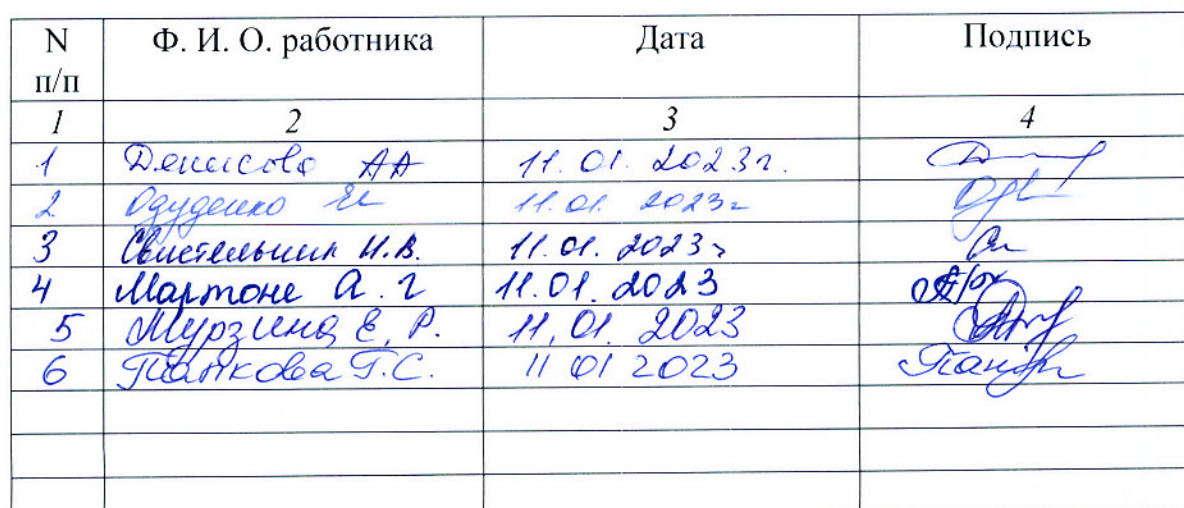 N п/п Ф. И. О. работника Дата Подпись
1 2 3 4
1 Денисова АА 11.01.2023г.
2 Одуденко 11.01.2023г
3 Свистельник Н.В. 11.01.2023г
4 Мартоне А.г 11.01.2023
5 Мурзина Е.Р. 11.01.2023
6 Панкова Т.С. 11 01 2023